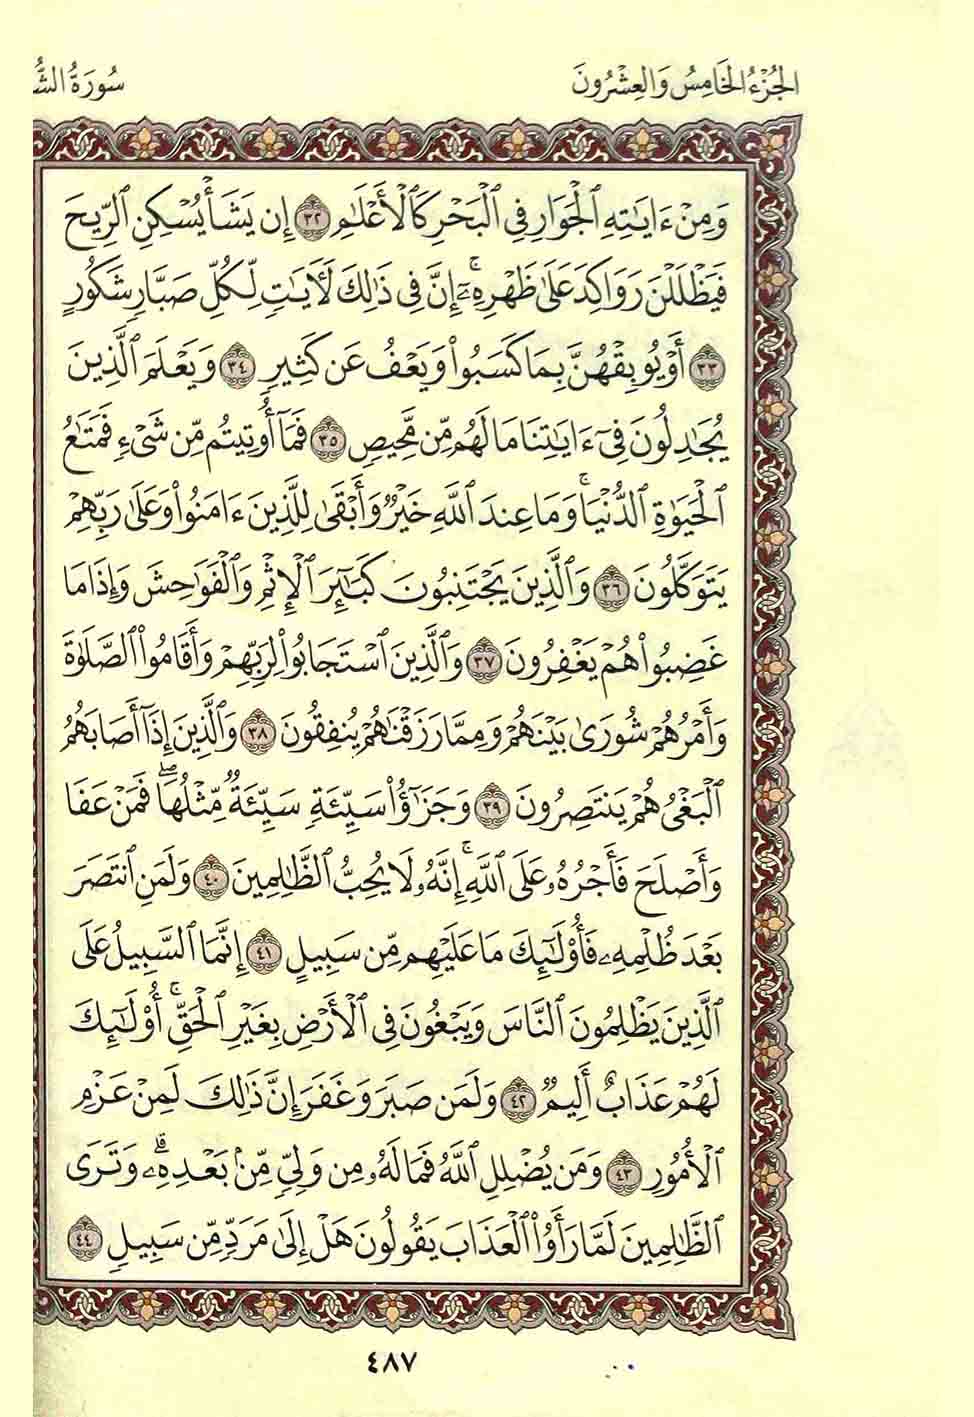 الجُزْءُ الخَامِسُ وَالعِشْرُونَ
سُورَةُ الشُّ
وَمِنْ ءَايَٰتِهِ ٱلْجَوَارِ فِي ٱلْبَحْرِ كَٱلْأَعْلَٰمِ ٣٢ إِن يَشَأْ يُسْكِنِ ٱلرِّيحَ
فَيَظْلَلْنَ رَوَاكِدَ عَلَىٰ ظَهْرِهِۦٓ ۚ إِنَّ فِي ذَٰلِكَ لَءَايَٰتٍ لِّكُلِّ صَبَّارٍ شَكُورٍ
٣٣ أَوْ يُوبِقْهُنَّ بِمَا كَسَبُوا۟ وَيَعْفُ عَن كَثِيرٍ ٣٤ وَيَعْلَمَ ٱلَّذِينَ
يُجَٰدِلُونَ فِيٓ ءَايَٰتِنَا مَا لَهُم مِّن مَّحِيصٍ ٣٥ فَمَآ أُوتِيتُم مِّن شَيْءٍ فَمَتَٰعُ
ٱلْحَيَوٰةِ ٱلدُّنْيَا ۚ وَمَا عِندَ ٱللَّهِ خَيْرٌ وَأَبْقَىٰ لِلَّذِينَ ءَامَنُوا۟ وَعَلَىٰ رَبِّهِمْ
يَتَوَكَّلُونَ ٣٦ وَٱلَّذِينَ يَجْتَنِبُونَ كَبَٰٓئِرَ ٱلْإِثْمِ وَٱلْفَوَٰحِشَ وَإِذَا مَا
غَضِبُوا۟ هُمْ يَغْفِرُونَ ٣٧ وَٱلَّذِينَ ٱسْتَجَابُوا۟ لِرَبِّهِمْ وَأَقَامُوا۟ ٱلصَّلَوٰةَ
وَأَمْرُهُمْ شُورَىٰ بَيْنَهُمْ وَمِمَّا رَزَقْنَٰهُمْ يُنفِقُونَ ٣٨ وَٱلَّذِينَ إِذَآ أَصَابَهُمُ
ٱلْبَغْيُ هُمْ يَنتَصِرُونَ ٣٩ وَجَزَٰٓؤُا۟ سَيِّئَةٍ سَيِّئَةٌ مِّثْلُهَا ۖ فَمَنْ عَفَا
وَأَصْلَحَ فَأَجْرُهُۥ عَلَى ٱللَّهِ ۚ إِنَّهُۥ لَا يُحِبُّ ٱلظَّٰلِمِينَ ٤٠ وَلَمَنِ ٱنتَصَرَ
بَعْدَ ظُلْمِهِۦ فَأُو۟لَٰٓئِكَ مَا عَلَيْهِم مِّن سَبِيلٍ ٤١ إِنَّمَا ٱلسَّبِيلُ عَلَى
ٱلَّذِينَ يَظْلِمُونَ ٱلنَّاسَ وَيَبْغُونَ فِي ٱلْأَرْضِ بِغَيْرِ ٱلْحَقِّ ۚ أُو۟لَٰٓئِكَ
لَهُمْ عَذَابٌ أَلِيمٌ ٤٢ وَلَمَن صَبَرَ وَغَفَرَ إِنَّ ذَٰلِكَ لَمِنْ عَزْمِ
ٱلْأُمُورِ ٤٣ وَمَن يُضْلِلِ ٱللَّهُ فَمَا لَهُۥ مِن وَلِيٍّ مِّنۢ بَعْدِهِۦ ۗ وَتَرَى
ٱلظَّٰلِمِينَ لَمَّا رَأَوُا۟ ٱلْعَذَابَ يَقُولُونَ هَلْ إِلَىٰ مَرَدٍّ مِّن سَبِيلٍ ٤٤
٤٨٧